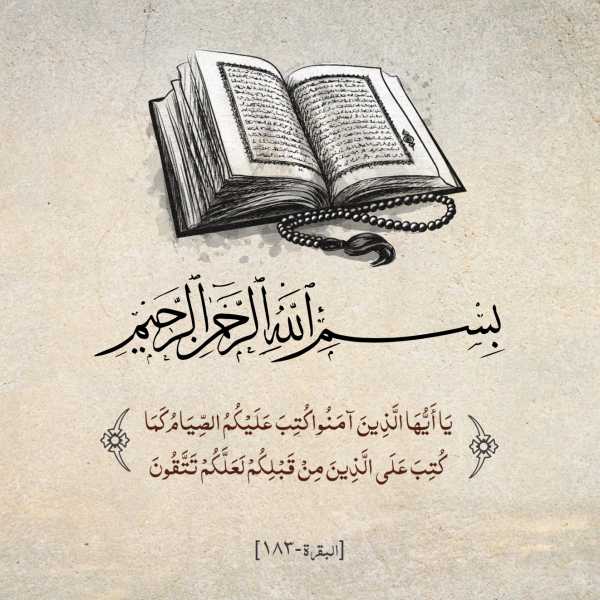 بِسْمِ ٱللَّهِ ٱلرَّحْمَٰنِ ٱلرَّحِيمِ
يَا أَيُّهَا الَّذِينَ آمَنُوا كُتِبَ عَلَيْكُمُ الصِّيَامُ كَمَا
كُتِبَ عَلَى الَّذِينَ مِنْ قَبْلِكُمْ لَعَلَّكُمْ تَتَّقُونَ
[البقرة-١٨٣]